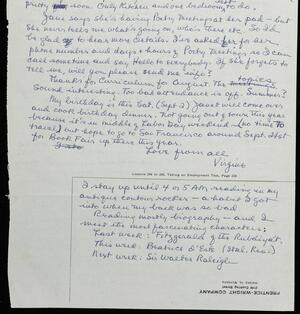 pretty soon. Only kitchen and one bedroom, to do.
Jane says she's having Poetry Meetings at her pad — but
she never tells me what's going on, when, there etc. So I'd
be glad to hear more details. I've asked for her
phone number and days & hours of Poetry Meetings so I can
call sometime and say Hello to everybody. If she forgets to
tell me will you please send me info?
Thanks for Curriculum for August. The topics
sound interesting. Too bad attendance is off. Summer?
My birthday is this Sat. (Sept 2) Janet will come over
and cook birthday dinner. Not going out of town this year
because it's in middle of Labor Day weekend — (no time to
travel) but hope to go to San Francisco around Sept. 21st
for Book Fair up there this year.
Love from all
Virginia
I stay up until 4 or 5 AM reading in my
antique contour rocker — a habit I got
into when my back was so bad.
Reading mostly biography — and I
meet the most fascinating characters:
Last week: Fitzgerald of the Rubaiyat.
This week: Beatrice d'Este (Ital. Ren.)
Next week: Sir Walter Raleigh
PRENTICE-WRIGHT COMPANY